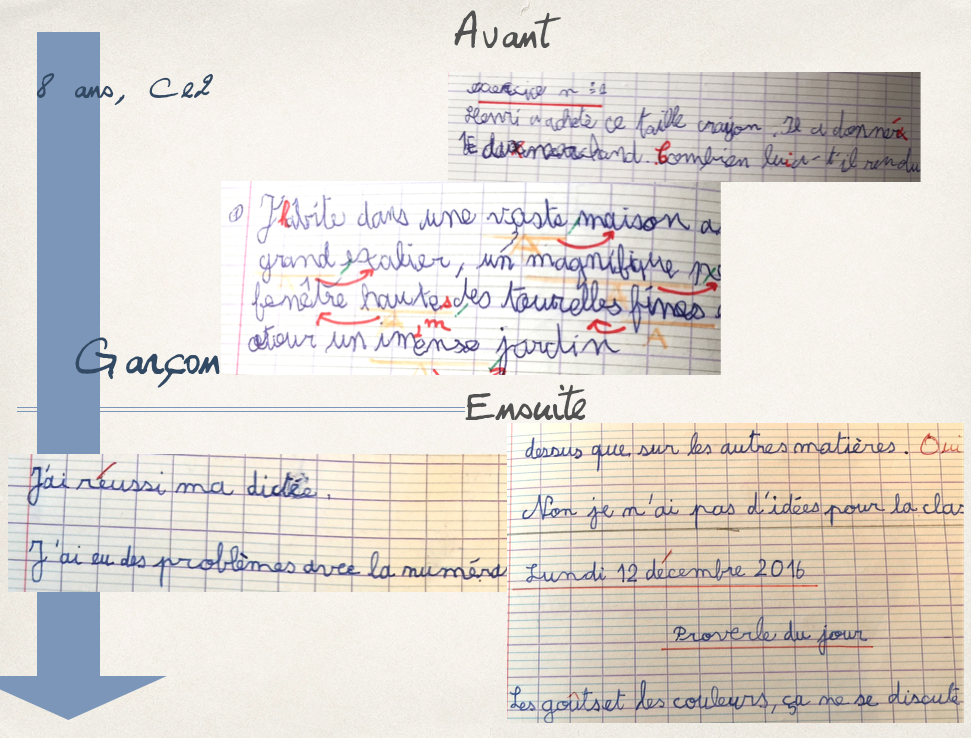 Avant
8 ans, Ce2
exercice n :1
Henri a acheté ce taille crayon. Il a donner
marchand. Combien lui a-t-il rendu
J'hbite dans une vaste maison a
grand escalier, un magnifique
fenêtre hautes des tourelles fines
otour un imense jardin
m
A
Garçon
Ensuite
dessus que sur les autres matières. Oui
Non je n'ai pas d'idées pour la clas
Lundi 12 décembre 2016
Proverbe du jour
Les goûts et les couleurs, ça ne se discute
J'ai réussi ma dictée.
J'ai eu des problèmes avec la numéra